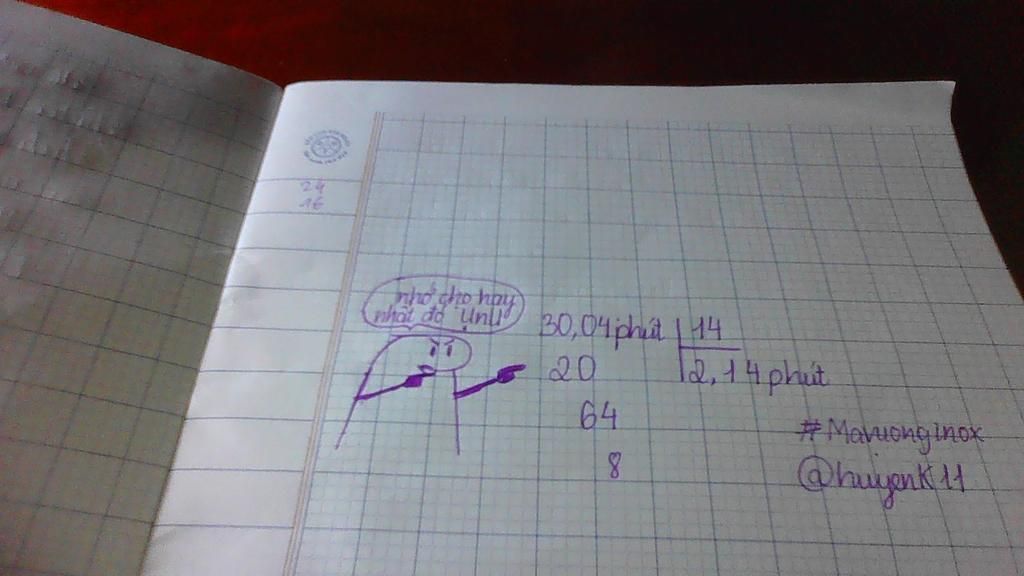 24
16
nhớ cho hay
nhất đó
30,04 phút 14
20 2,14 phút
64
8
#Mavuonginox
@huyenK11